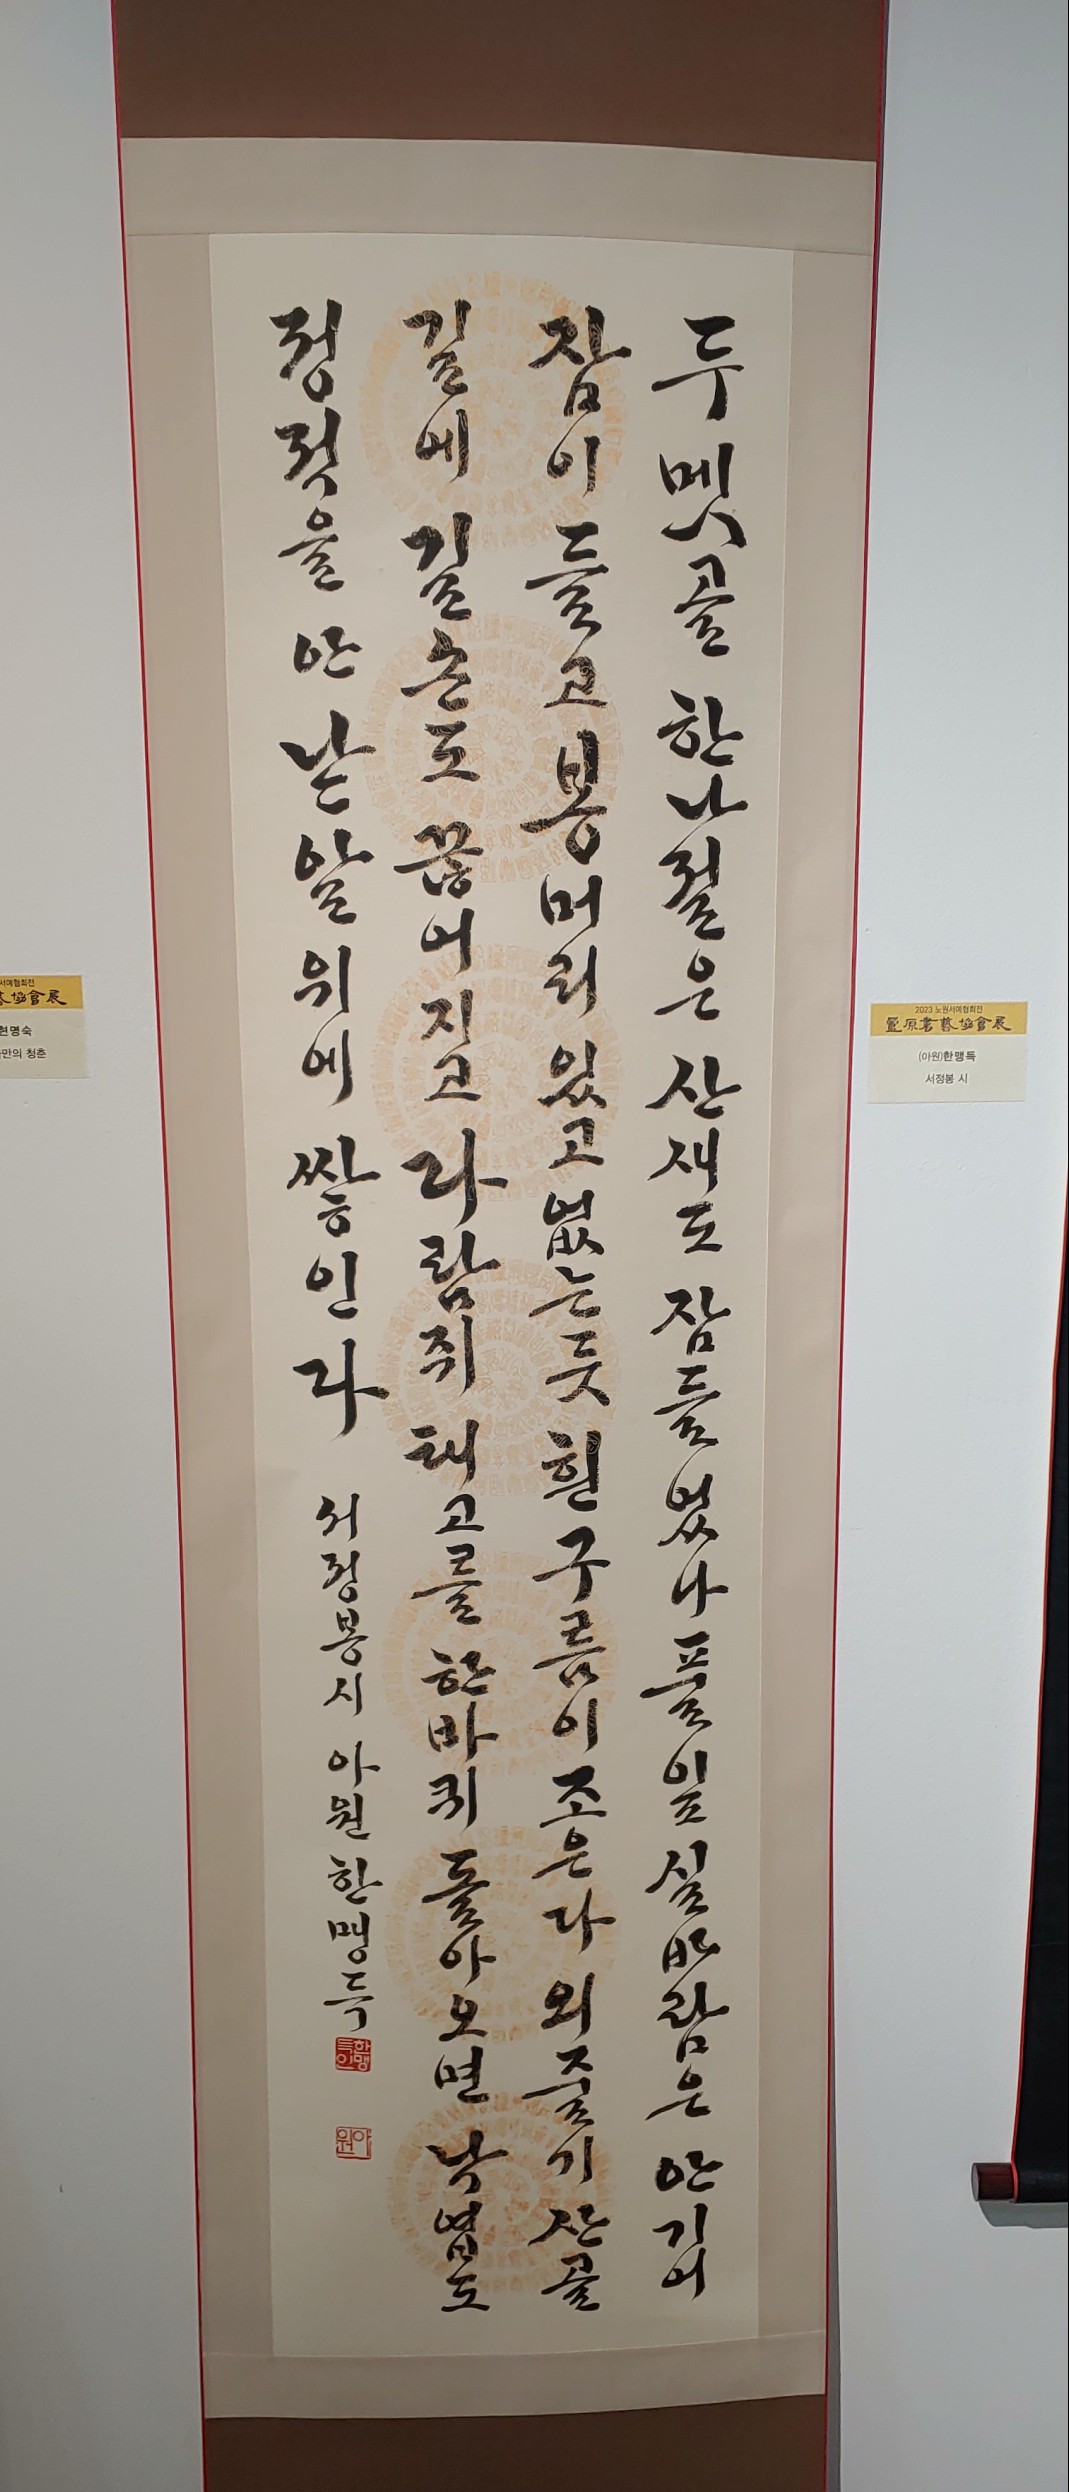 두멧골 한나절은 산새도 잠들었나 풀잎 실바람은 안기어
잠이 들고 봉머리 있고 없는듯 흰구름이 조은다 외줄기 산골
길에 길손도 끊어지고 다람쥐 쳇고를 한바퀴 돌아오면 낙엽도
정적을 안 낟알 위에 쌓인다
서정봉 시 아원 한맹득
한맹득인
아원
2023 노원서예협회전
蘆原書藝協會展
(아원)한맹득
서정봉 시
서예협회전
藝協會展
현명숙
만의 청춘